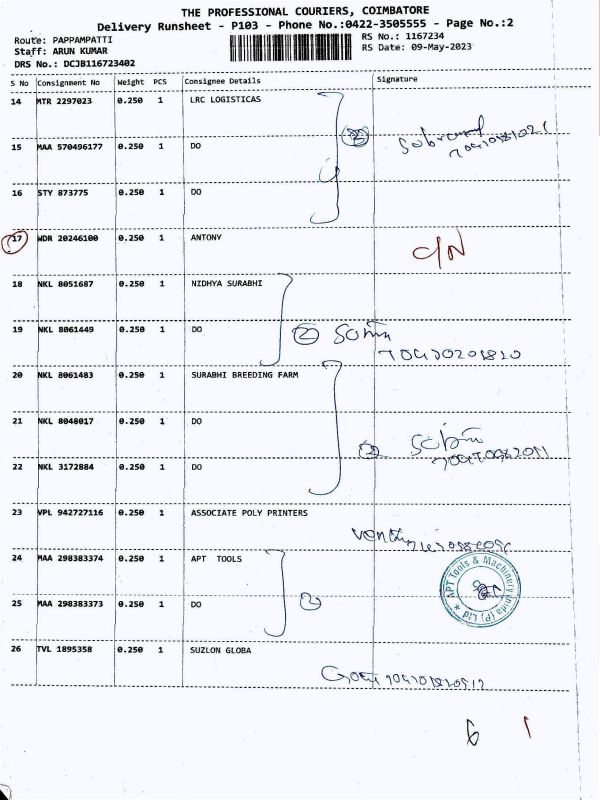 THE PROFESSIONAL COURIERS, COIMBATORE
Delivery Runsheet - P103 - Phone No.:0422-3505555 - Page No.:2
Route: PAPPAMPATTI
RS No.: 1167234
Staff: ARUN KUMAR
RS Date: 09-May-2023
DRS No.: DCJB116723402
S No Consignment No Weight PCS Consignee Details Signature
14 MTR 2297023 0.250 1 LRC LOGISTICAS
15 MAA 570496177 0.250 1 DO
16 STY 873775 0.250 1 DO
17 WDR 20246100 0.250 1 ANTONY C/N
18 NKL 8051687 0.250 1 NIDHYA SURABHI
19 NKL 8061449 0.250 1 DO 2
20 NKL 8061483 0.250 1 SURABHI BREEDING FARM
21 NKL 8048017 0.250 1 DO
22 NKL 3172884 0.250 1 DO
23 VPL 942727116 0.250 1 ASSOCIATE POLY PRINTERS
24 MAA 298383374 0.250 1 APT TOOLS
APT Tools & Machinery India (P) Ltd
25 MAA 298383373 0.250 1 DO 2
26 TVL 1895358 0.250 1 SUZLON GLOBA
6 1